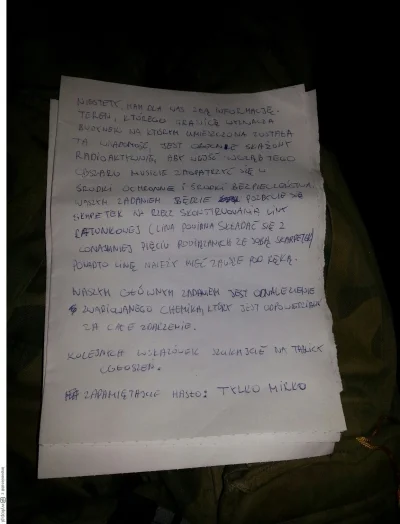 NIESTETY, MAM DLA WAS ZŁĄ INFORMACJĘ.
TEREN, KTÓREGO GRANICĘ WYZNACZA
BUDYNEK NA KTÓRYM UMIESZCZONA ZOSTAŁA
TA WIADOMOŚĆ, JEST OBSZAREM SKAŻONY
RADIOAKTYWNIE, ABY WEJŚĆ WGŁĄB TEGO
OBSZARU MUSICIE ZAOPATRZYĆ SIĘ W
ŚRODKI OCHRONNE I ŚRODKI BEZPIECZEŃSTWA
WASZYM ZADANIEM BĘDZIE POZBYCIE SIĘ
SKARPETEK NA RZECZ SKONSTRUOWANIA LINY
RATUNKOWEJ (LINA POWINNA SKŁADAĆ SIĘ Z
CONAJMNIEJ PIĘCIU POWIĄZANYCH ZE SOBĄ SKARPETEK)
PONADTO LINĘ NALEŻY MIEĆ ZAWSZE POD RĘKĄ.
WASZYM GŁÓWNYM ZADANIEM JEST ODNALEZIENIE
ZWARIOWANEGO CHEMIKA, KTÓRY JEST ODPOWIEDZIALNY
ZA CAŁE ZDARZENIE.
KOLEJNYCH WSKAZÓWEK SZUKAJCIE NA TABLICY
OGŁOSZEŃ.
ZAPAMIĘTAJCIE HASŁO: TYLKO MIRKO